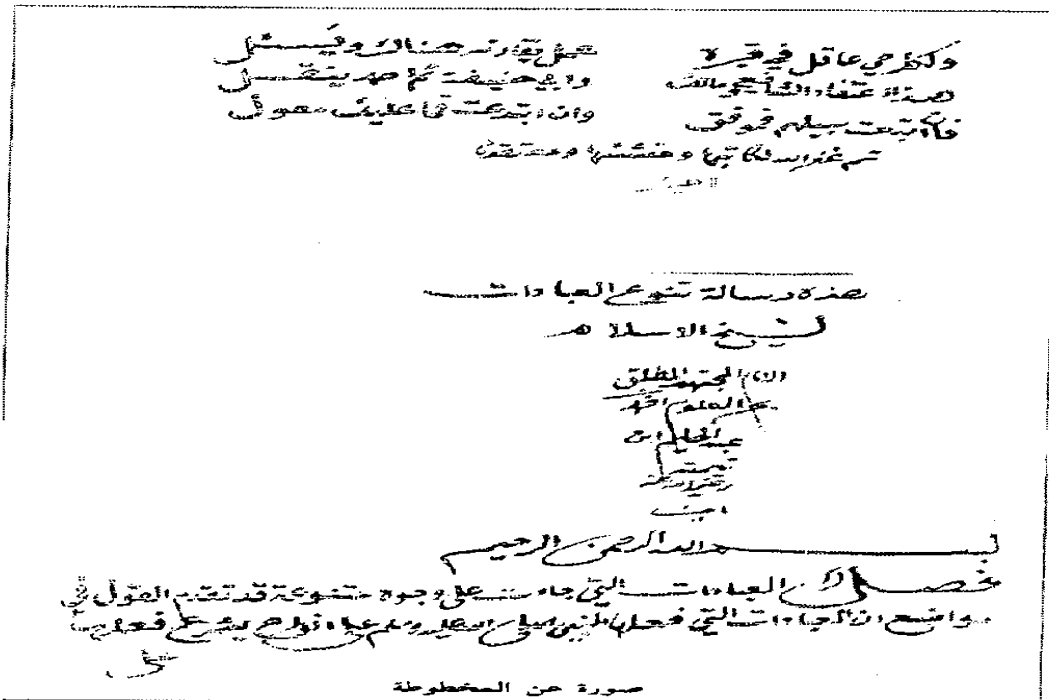 ولكل حي عاقل في قبره عمل يقارنه هناك ويسئل
هذا اعتقاد الشافعي ومالك وابي حنيفة ثم احمد ينقل
فان اتبعت سبيلهم فموفق وان ابتدعت فما عليك معول
تم غفر الله لكاتبها و
هذه رسالة تنوع العبادات
لشيخ الاسلام
الامام المجتهد المطلق
احمد
عبد الحليم ابن
تيمية
رضي الله عنه
امين
بسم الله الرحمن الرحيم
فصل في العبادات التي جاءت على وجوه متنوعة قد تقدم القول في
مواضع ان العبادات التي فعلها النبي صلى الله عليه وسلم على انواع يشرع فعلها
على
صورة عن المخطوطة